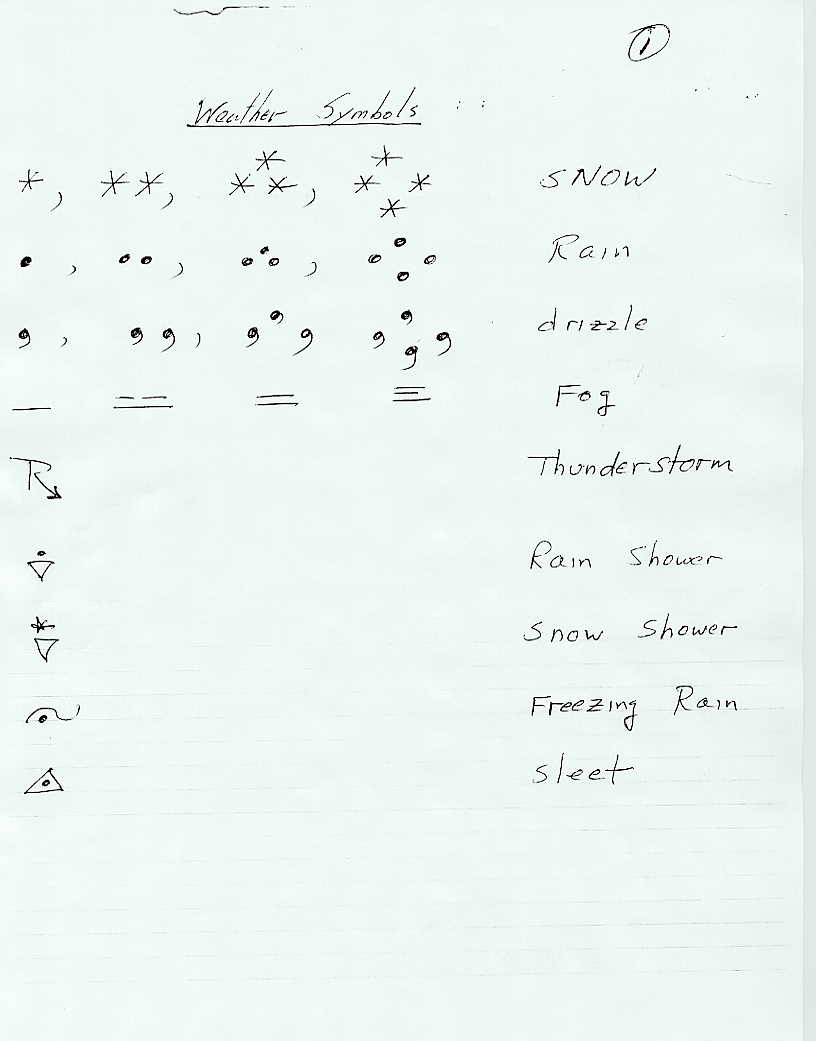 1
Weather Symbols
SNOW
Rain
drizzle
Fog
Thunderstorm
Rain Shower
Snow Shower
Freezing Rain
Sleet